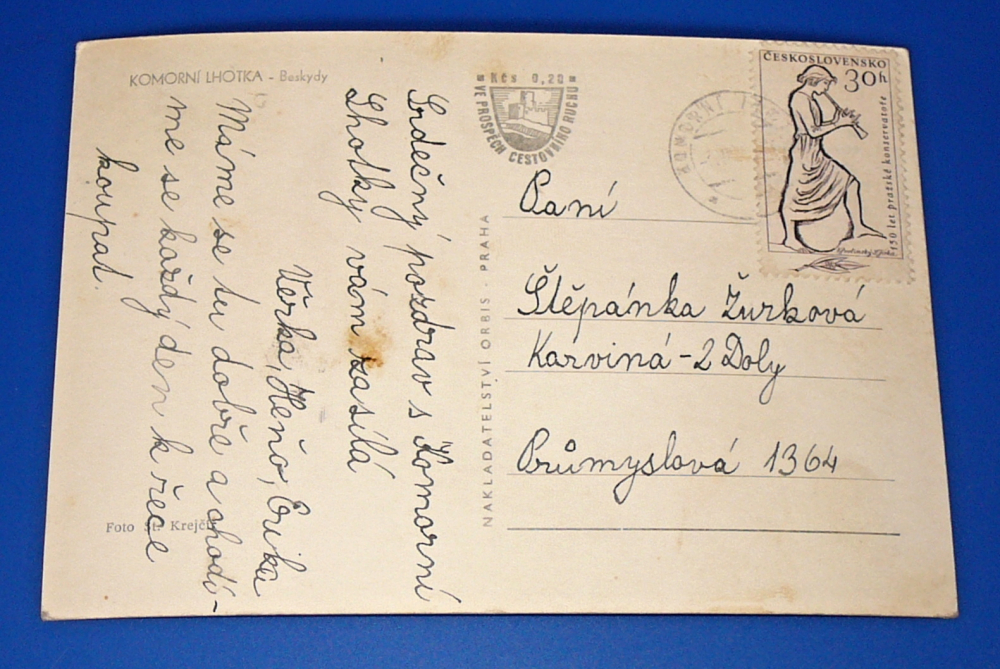 KOMORNÍ LHOTKA - Beskydy
Kčs 0,20
VE PROSPĚCH CESTOVNÍHO RUCHU
KOMORNÍ
ČESKOSLOVENSKO
30h
150 let pražské konservatoře
Srdečný pozdrav s Komorní
Lhotky vám zasílá
Věrka, Heňo, Erika
Máme se tu dobře a chodí-
me se každý den k řece
koupat.
Foto St. Krejčí
NAKLADATELSTVÍ ORBIS - PRAHA
Paní
Štěpánka Žurková
Karviná-2 Doly
Průmyslová 1364